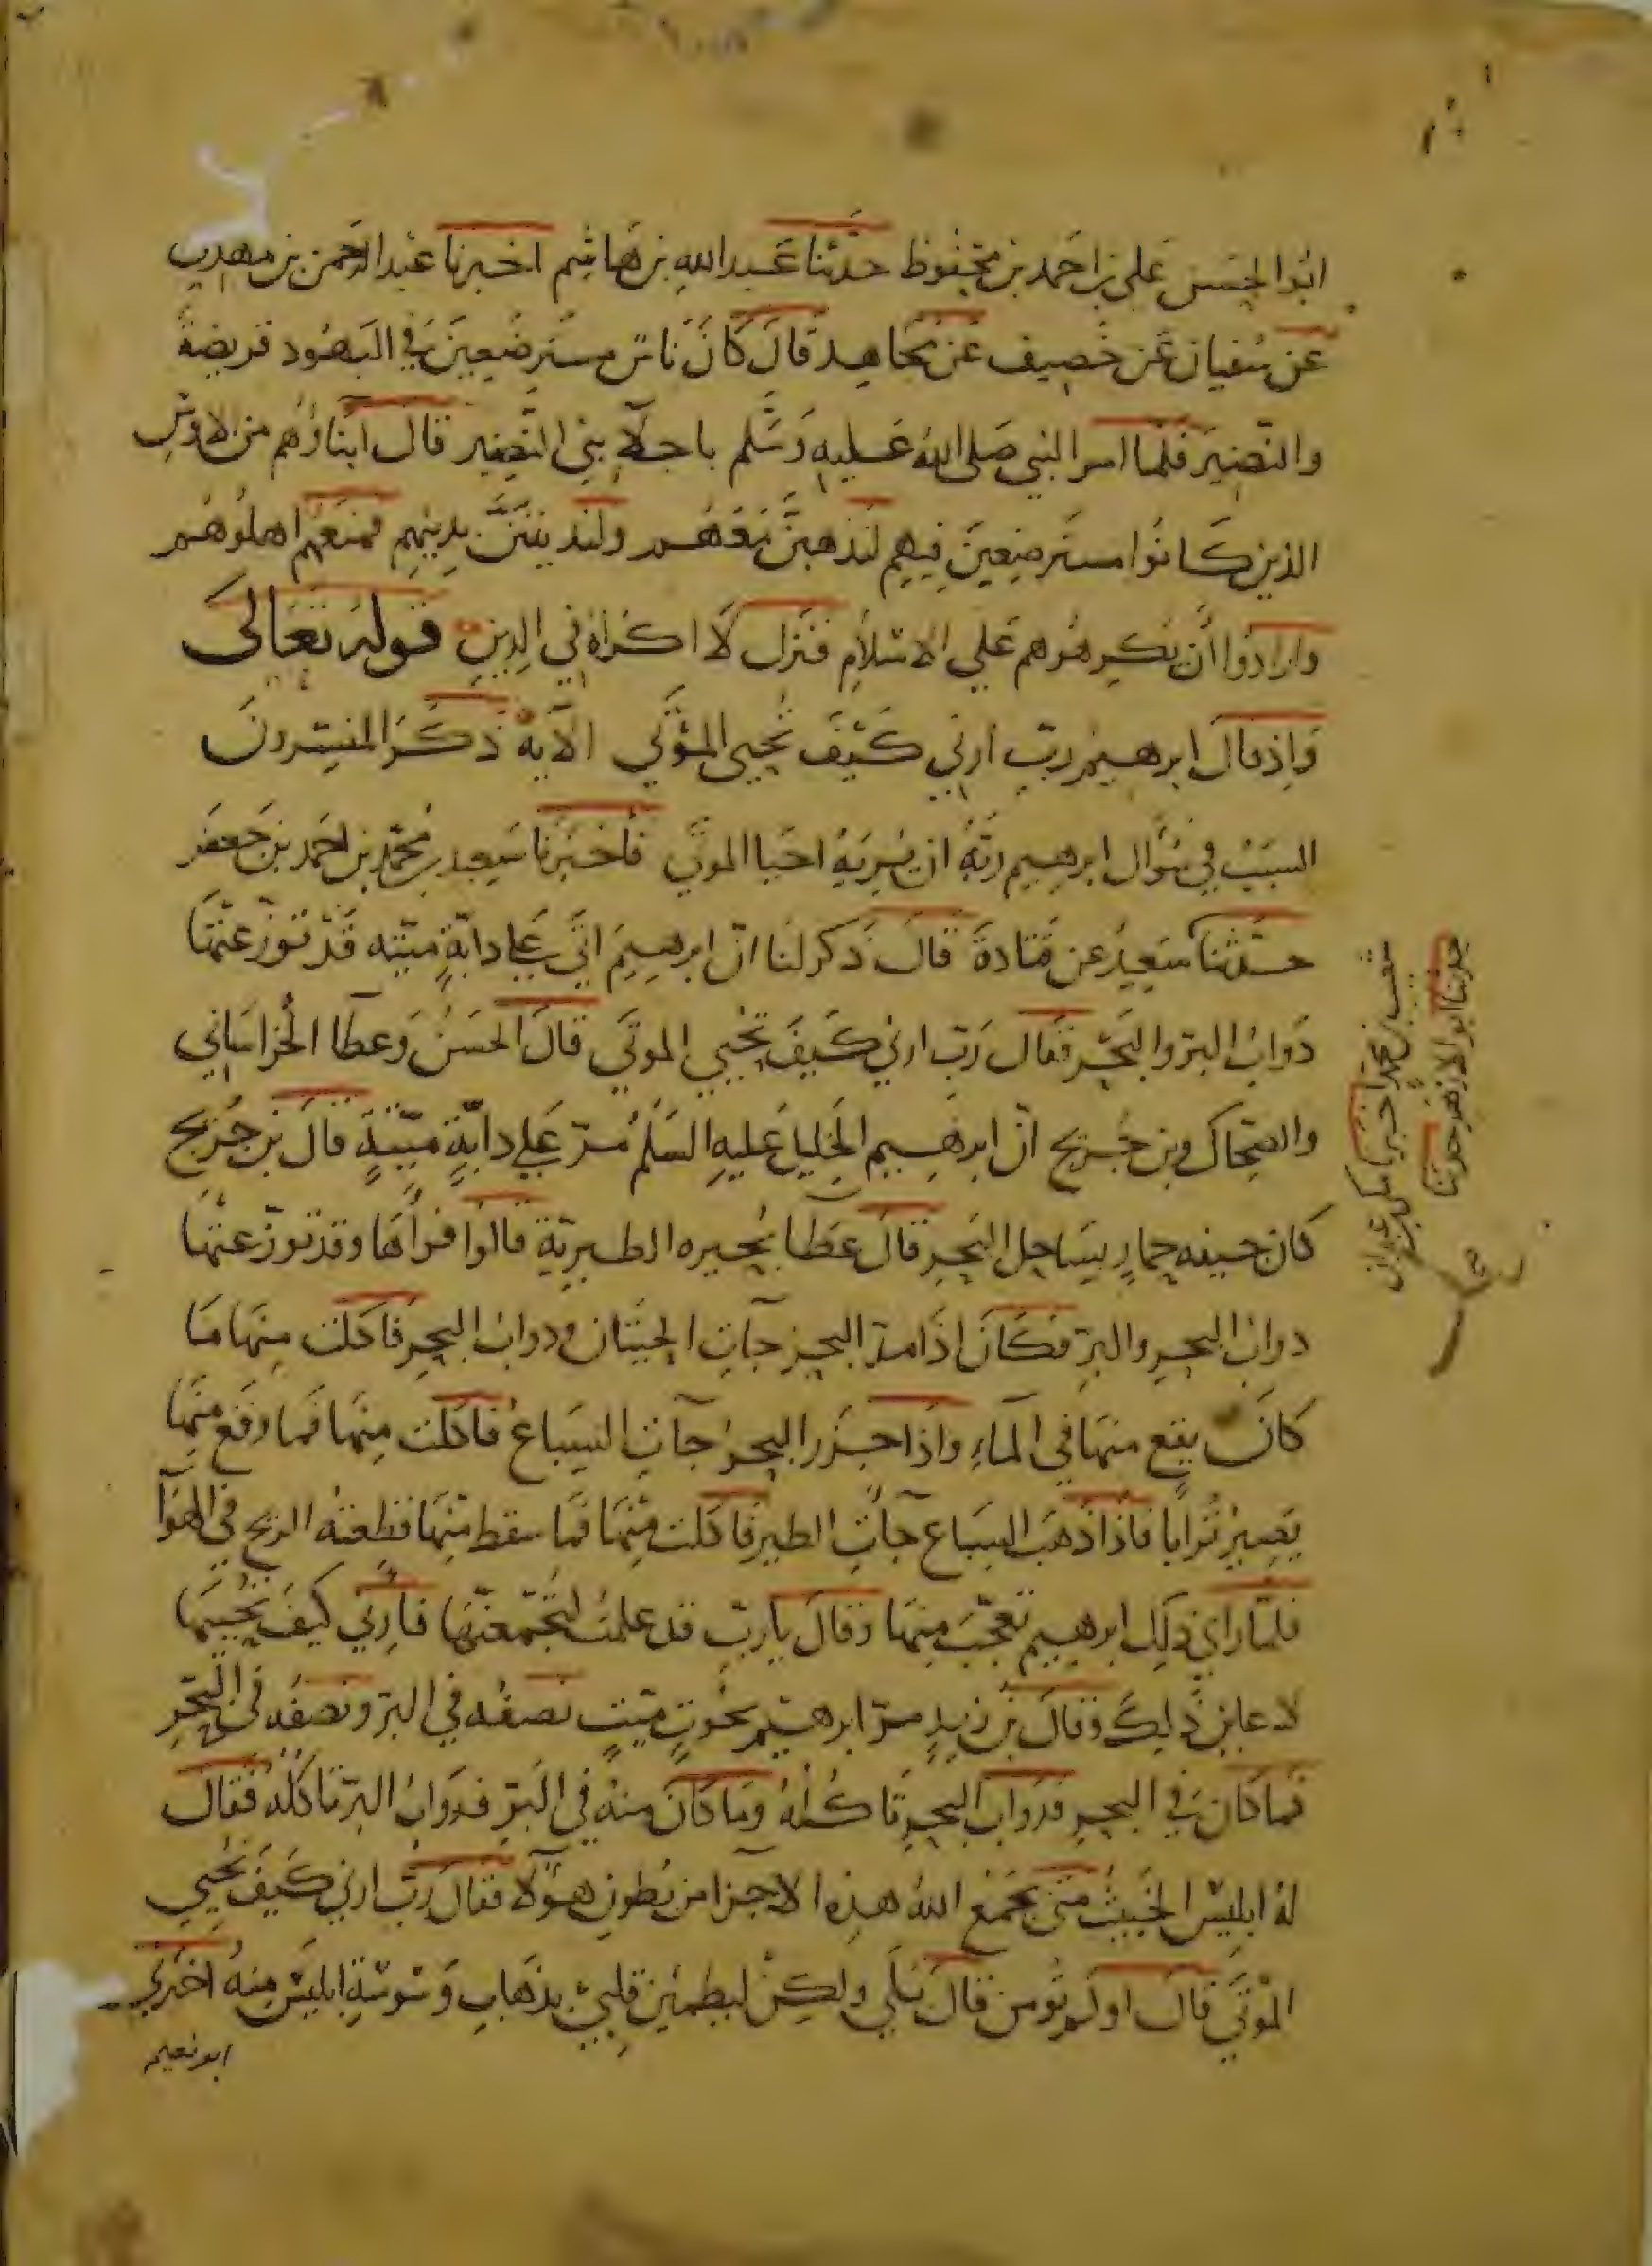 ابوا الحسن علي بن احمد بن محفوظ حدثنا عبد الله بن هاشم اخبرنا عبد الرحمن بن مهدي
عن سفيان عن خصيف عن مجاهد قال كان ناس مسترضعين في اليهود قريضة
والنضير فلما امر النبي صلى الله عليه وسلم باجلآ بني النضير قال ابناؤهم من الاوس
الذين كانوا مسترضعين فيهم لنذهبن معهم ولنديننن بدينهم فمنعهم اهلوهم
وارادوا أن يكرهوهم على الاسلام فنزل لا اكراه في الدين قوله تعالى
واذ قال ابرهيم رب ارني كيف تحيي الموتى الآية ذكر المفسرون
السبب في سؤال ابرهيم ربه ان يريه احيا الموتى فأخبرنا سعيد بن محمد بن احمد بن جعفر
حدثنا سعيد عن قتادة قال ذكر لنا انّ ابرهيم اتى على دابة ميته قد توزعتها
دواب البر والبحر فقال رب ارني كيف تحيي الموتى قال الحسن وعطا الخراساني
والضحاك وبن جريج انّ ابرهيم الخليل عليه السلم مرّ على دابة ميتة قال بن جريج
كان جيفه حمار بساحل البحر قال عطا بحيره الطبرية قالوا فرأها وقد توزعتها
دواب البحر والبر فكان اذا مد البحر جآت الحيتان ودواب البحر فاكلت منها ما
كان يقع منها في المآء واذا جزر البحر جآت السباع فاكلت منها فما وقع منها
يصير ترابا فاذا ذهب السباع جآت الطير فاكلت منها فما سقط منها قطعته الريح في الهوآ
فلما راى ذلك ابرهيم تعجب منها وقال يا رب قد علمت لتجمعنها فارني كيف تحييها
لاعاين ذلك وقال بن زيد مرّ ابرهيم بحوت ميت نصفه في البر ونصفه في البحر
فما كان في البحر فدواب البحر تاكله وما كان منه في البر فدواب البر تاكله فقال
له ابليس الخبيث متى يجمع الله هذه الاجزا من بطون هؤلآ فقال رب ارني كيف تحيي
الموتى قال اولم تؤمن قال بلى ولكن ليطمئن قلبي بذهاب وسوسة ابليس منه اخبرني
ابو نعيم
شعب بن محمد اخبرنا مكي بن عبدان
حدثنا ابو الازهر حدثنا
روح